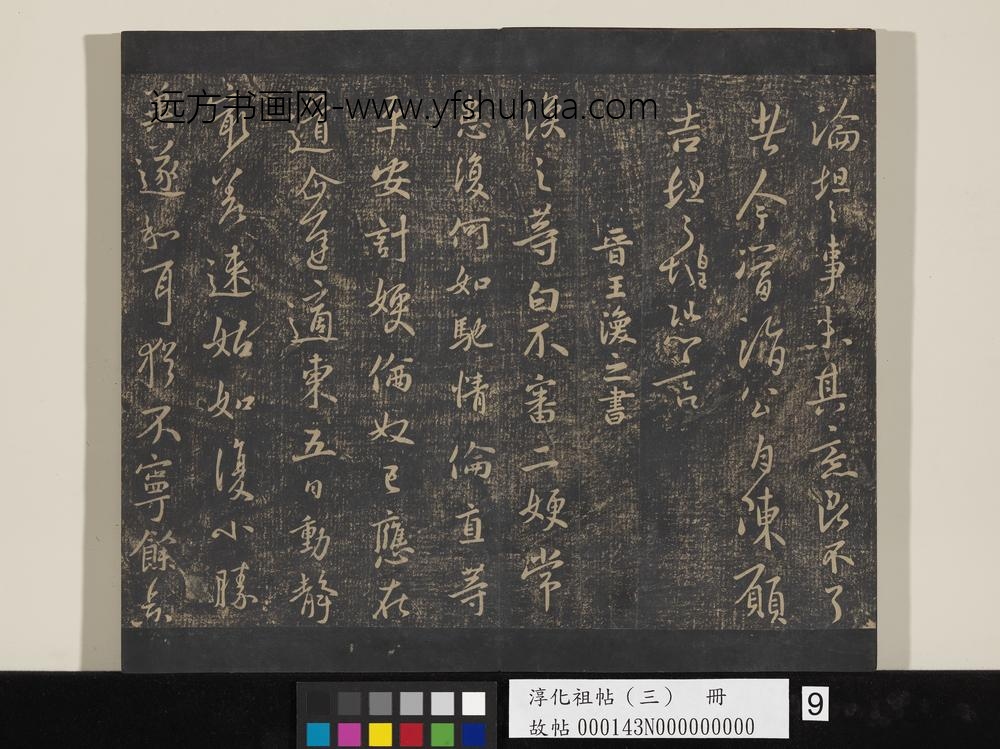 远方书画网-www.yfshuhua.com
淪坦之事未其意況不了
者今當詣公自陳願
告坦之惶恐言
晉王渙之書
渙之等白不審二嫂常
患復何如馳情倫直等
平安計嫂倆奴已應在
道命過適東五日動靜
差速姑如復小勝
遂和耳猶不寧餘吉
淳化祖帖（三） 冊
故帖 000143N000000000
9